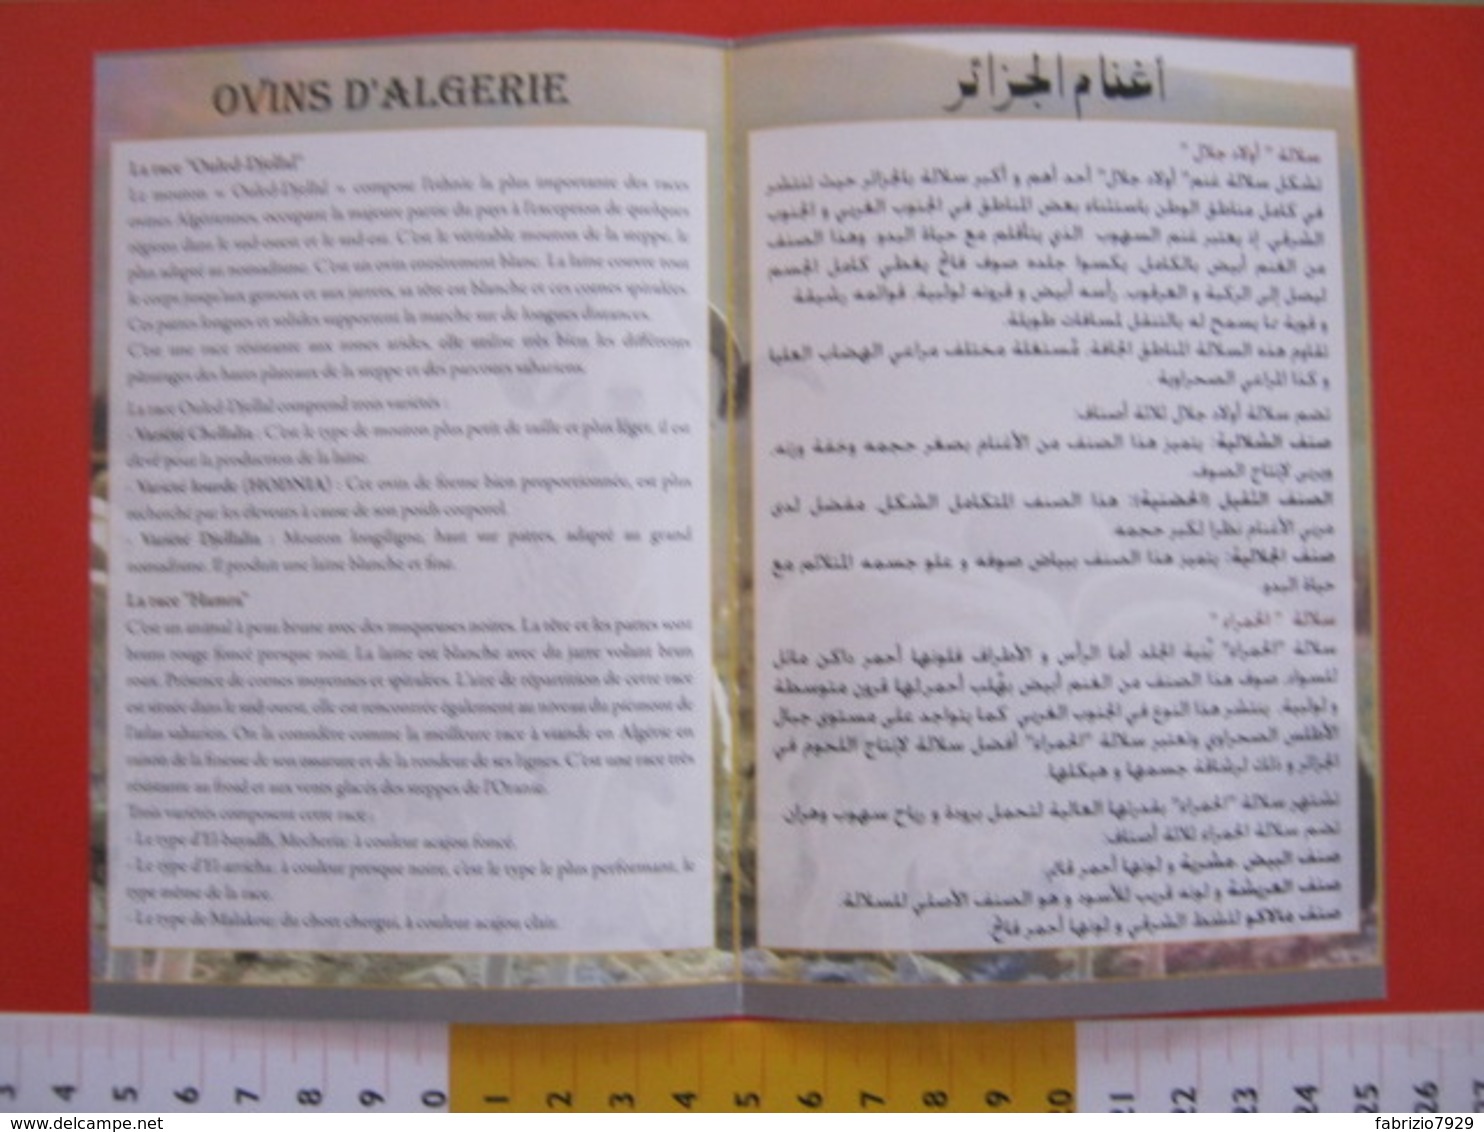 OVINS D'ALGERIE
La race "Ouled-Djellal"
Le mouton « Ouled-Djellal » compose l'ethnie la plus importante des races
ovines Algériennes, occupant la majeure partie du pays à l'exception de quelques
régions dans le sud-ouest et le sud-est. C'est le véritable mouton de la steppe, le
plus adapté au nomadisme. C'est un ovin entièrement blanc. La laine couvre tout
le corps jusqu'aux genoux et aux jarrets, sa tête est blanche et ces cornes spiralées.
Ces pattes longues et solides supportent la marche sur de longues distances.
C'est une race résistante aux zones arides, elle utilise très bien les différents
pâturages des hauts plateaux de la steppe et des parcours sahariens.
La race Ouled-Djellal comprend trois variétés :
- Variété Chellalia : C'est le type de mouton plus petit de taille et plus léger, il est
élevé pour la production de la laine.
- Variété lourde (HODNIA) : Cet ovin de forme bien proportionnée, est plus
recherché par les éleveurs à cause de son poids corporel.
- Variété Djellalia : Mouton longiligne, haut sur pattes, adapté au grand
nomadisme. Il produit une laine blanche et fine.
La race "Hamra"
C'est un animal à peau brune avec des muqueuses noires. La tête et les pattes sont
bruns rouge foncé presque noit. La laine est blanche avec du jarre volant brun
roux. Présence de cornes moyennes et spiralées. L'aire de répartition de cette race
est située dans le sud-ouest, elle est rencontrée également au niveau du piémont de
l'atlas saharien. On la considère comme la meilleure race à viande en Algérie en
raison de la finesse de son ossature et de la rondeur de ses lignes. C'est une race très
résistante au froid et aux vents glacés des steppes de l'Oranie.
Trois variétés composent cette race :
- Le type d'El-bayadh, Mecheria: à couleur acajou foncé.
- Le type d'El-aricha, à couleur presque noire, c'est le type le plus performant, le
type même de la race.
- Le type de Malakou: du chott chergui, à couleur acajou clair.
أغنام الجزائر
سلالة " أولاد جلال "
تشكل سلالة غنم" أولاد جلال" أحد أهم و أكبر سلالة بالجزائر حيث تنتشر
في كامل مناطق الوطن باستثناء بعض المناطق في الجنوب الغربي و الجنوب
الشرقي إذ يعتبر غنم السهوب الذي يتأقلم مع حياة البدو. وهذا الصنف
من الغنم أبيض بالكامل. يكسوا جلده صوف فاتح يغطي كامل الجسم
ليصل إلى الركبة و العرقوب. رأسه أبيض و قرونه لولبية. قوائمه رشيقة
و قوية ما يسمح له بالتنقل لمسافات طويلة.
تقاوم هذه السلالة المناطق الجافة. مُستغلة مختلف مراعي الهضاب العليا
و كذا المراعي الصحراوية .
تضم سلالة أولاد جلال ثلاثة أصناف:
صنف الشلالية: يتميز هذا الصنف من الأغنام بصغر حجمه وخفة وزنه.
ويربى لإنتاج الصوف.
الصنف الثقيل (الحضنية): هذا الصنف المتكامل الشكل. مفضل لدى
مربي الأغنام نظرا لكبر حجمه.
صنف الجلالية: يتميز هذا الصنف ببياض صوفه و علو جسمه المتلائم مع
حياة البدو.
سلالة " الحمراء "
سلالة "الحمراء" بُنية الجلد أما الرأس و الأطراف فلونها أحمر داكن مائل
للسواد. صوف هذا الصنف من الغنم أبيض أحمر. لها قرون متوسطة
و لولبية. ينتشر هذا النوع في الجنوب الغربي كما يتواجد على مستوى جبال
الأطلس الصحراوي وتعتبر سلالة "الحمراء" أفضل سلالة لإنتاج اللحوم في
الجزائر و ذلك لرشاقة جسمها و هيكلها.
تشتهر سلالة "الحمراء" بقدرتها العالية لتحمل برودة و رياح سهوب وهران.
تضم سلالة الحمراء ثلاثة أصناف:
صنف البيض مشرية و لونها أحمر قاتم.
صنف العريشة و لونه قريب للأسود و هو الصنف الأصلي للسلالة.
صنف مالاكو للشط الشرقي و لونها أحمر فاتح.
3 4 5 6 7 8 9 0 1 2 3 4 5 6 7 8 9 20 21 22 23 24 25 26 27
delcampe.net
fabrizio7929